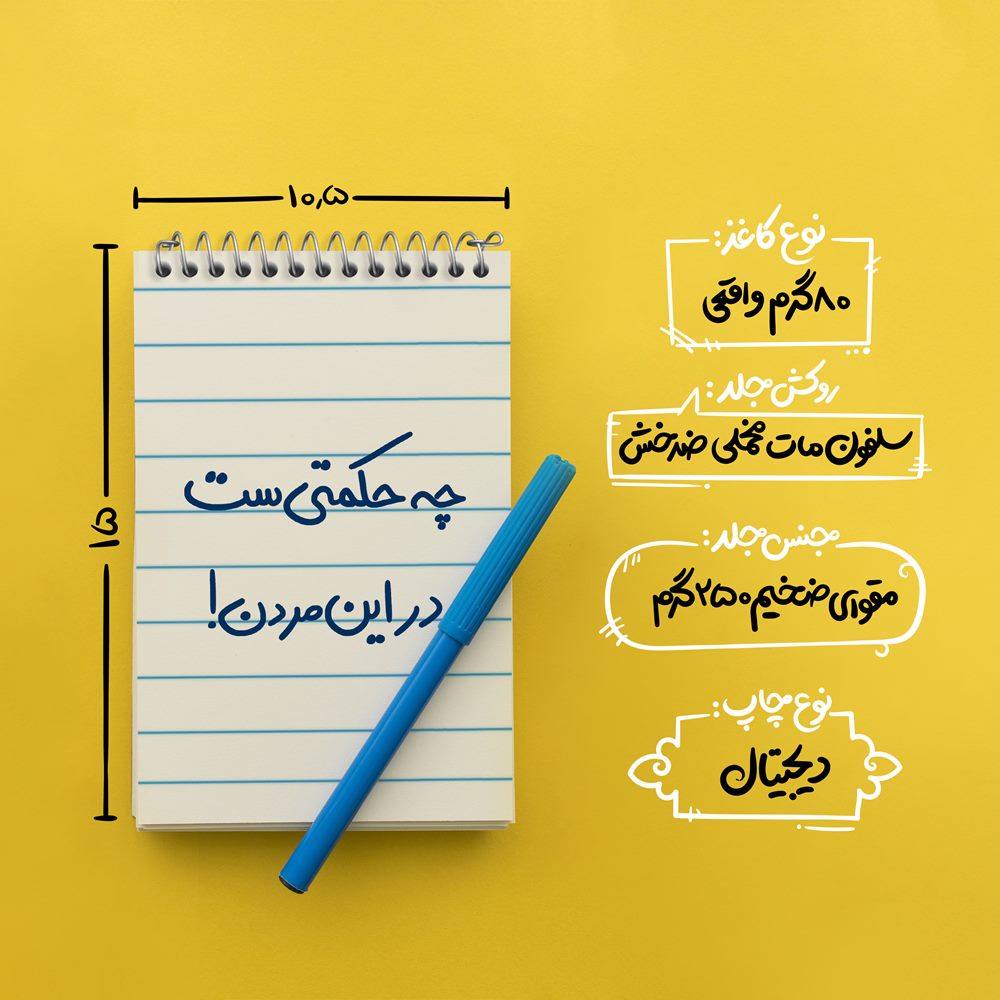 ۱۰,۵
۱۵
چه حکمتی ست
در این مردن!
نوع کاغذ:
۸۰گرم واقعی
روکش جلد:
سلفون مات مخملی ضدخش
جنس جلد:
مقوای ضخیم ۲۵۰گرم
نوع چاپ:
دیجیتال